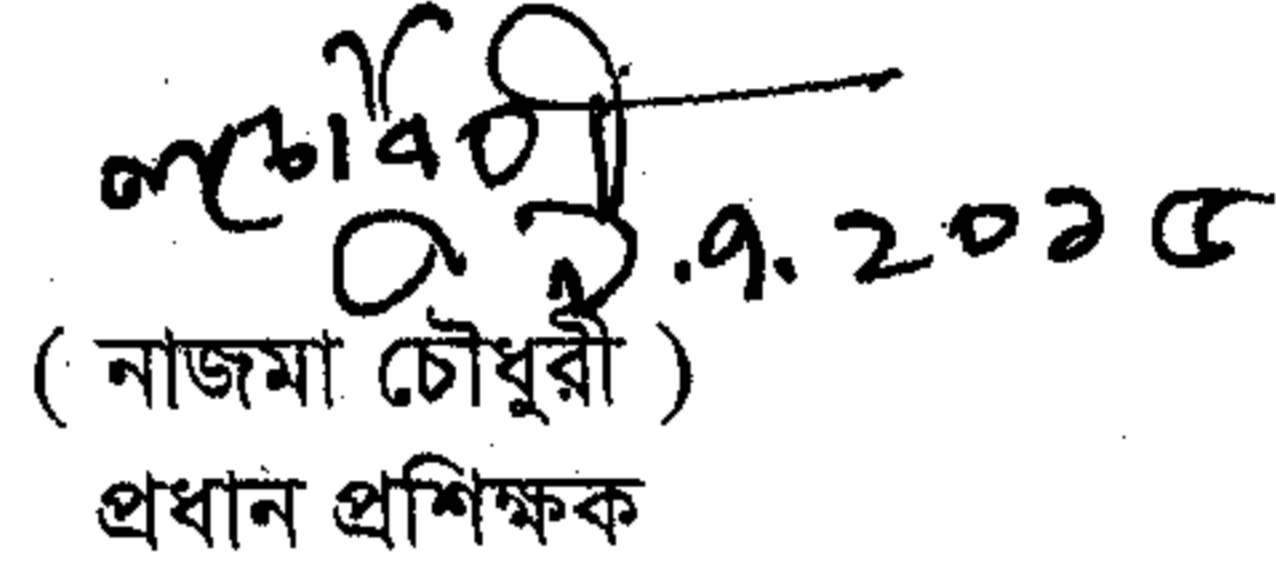 ০২.৭.২০১৫
( নাজমা চৌধুরী )
প্রধান প্রশিক্ষক